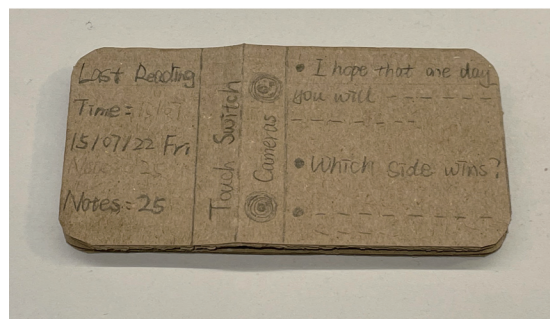 Last Reading
Time:
15/07/22 Fri
Notes: 25
Notes: 25
Touch Switch
Cameras
• I hope that one day
you will
• Which side wins?
•